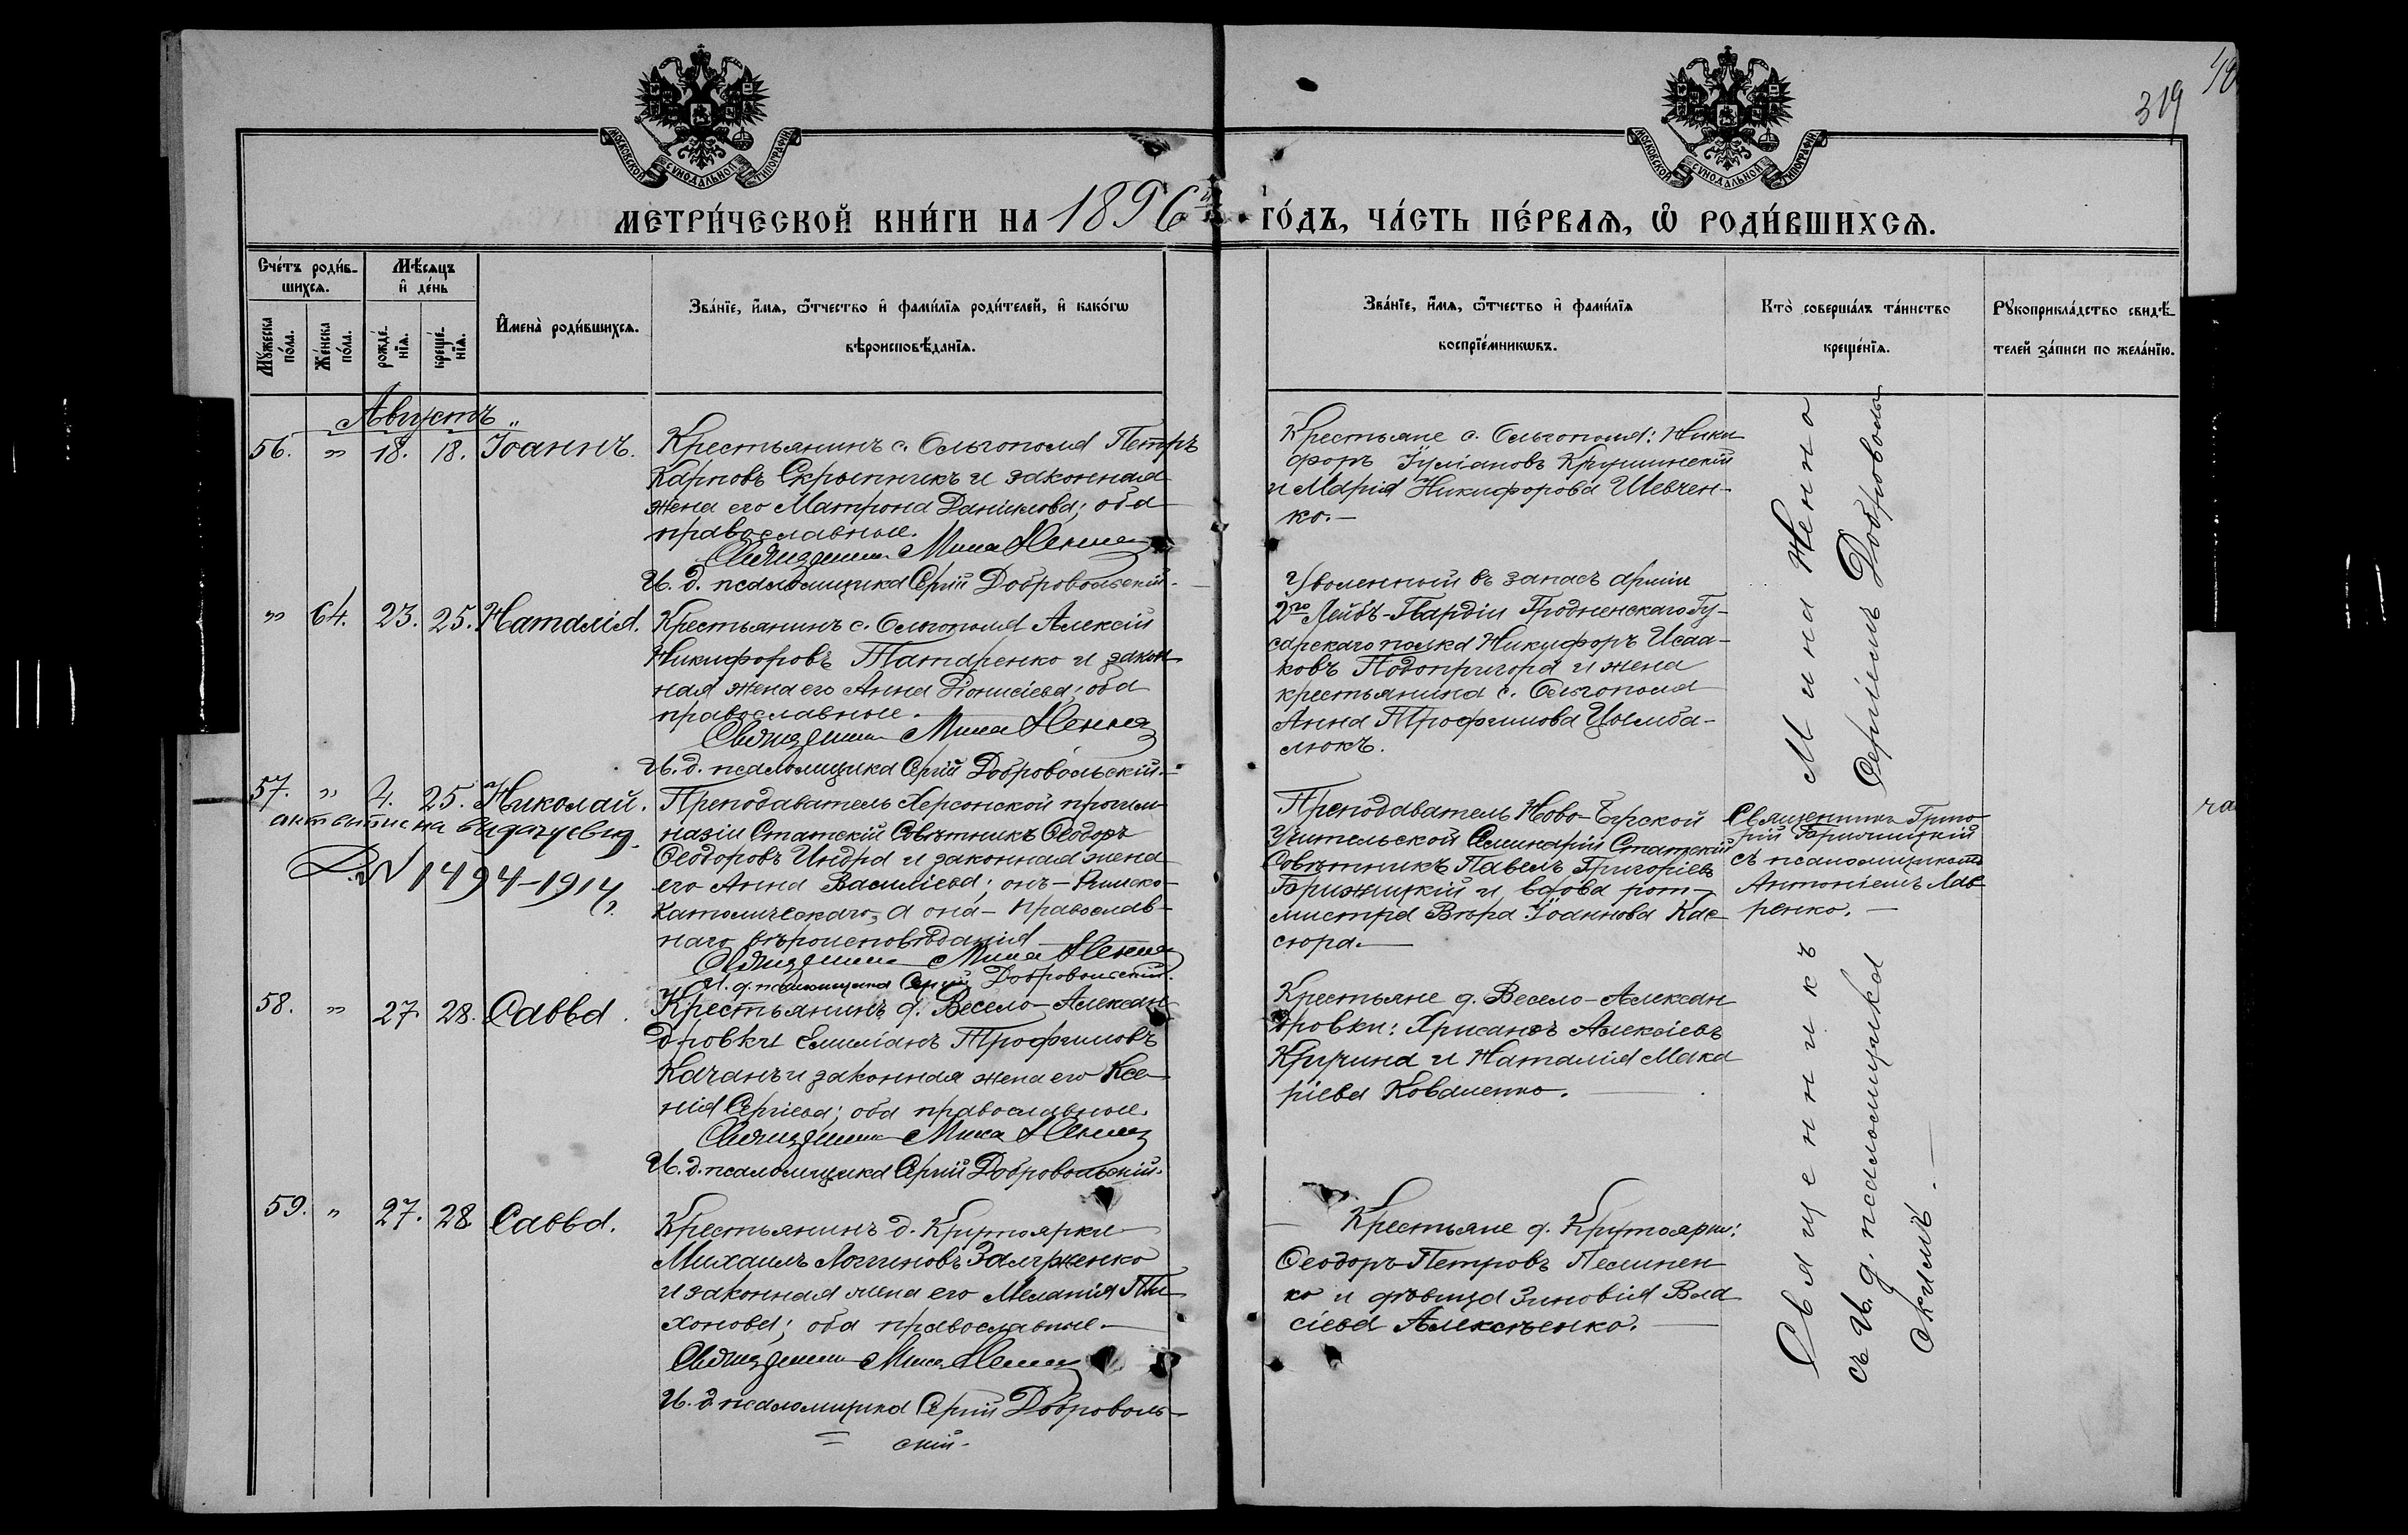 319
МОСКОВСКОЙ СѴНОДАЛЬНОЙ ТИПОГРАФІИ
МОСКОВСКОЙ СѴНОДАЛЬНОЙ ТИПОГРАФІИ
МЕТРИ́ЧЕСКОЙ КНИ́ГИ НА 1896й ГО́ДЪ, ЧА́СТЬ ПЕ́РВАѦ, Ѡ РОДИ́ВШИХСѦ.
Сче́тъ роди́в-
шихсѧ.
Мꙋжеска по́ла.
Же́нска по́ла.
Мѣ́сѧцъ и де́нь
рожде́-
нїѧ.
креще́-
нїѧ.
И҆мена̀ роди́вшихсѧ.
Зва́нїе, и҆́мѧ, ѻ҆́тчество и҆ фами́лїѧ роди́телей, и҆ како́гѡ
вѣроисповѣ́данїѧ.
Зва́нїе, и҆́мѧ, ѻ҆́тчество и҆ фами́лїѧ
воспрїе́мникѡвъ.
Кто̀ соверша́лъ та́инство
креще́нїѧ.
Рꙋкоприкла́дство свидѣ́-
телей за́писи по жела́нїю.
Августъ
56. " 18. 18. Іоаннъ.
Крестьянинъ с. Ольгополя Петръ
Карповъ Скрыпникъ и законная
жена его Матрона Даніилова; оба
православные.
Священникъ Мина Ненно
И. д. псаломщика Сергій Добровольскій.
Крестьяне с. Ольгополя: Ники
форъ Іуліановъ Крушинскій
и Марія Никифорова Шевчен-
ко. —
" 64. 23. 25. Наталія.
Крестьянинъ с. Ольгополя Алексій
Никифоровъ Татаренко и закон
ная жена его Анна Діонисіева; оба
православные.
Священникъ Мина Ненно
И. д. псаломщика Сергій Добровольскій.
Уволенный въ запасъ арміи
2го Лейбъ-Гвардіи Гродненскаго Гу-
сарскаго полка Никифоръ Исаа-
ковъ Подопригора и жена
крестьянина с. Ольгополя
Анна Трофимова Цымба-
люкъ.
57. " 4. 25. Николай.
на видачу свид.
№ 1494-1914 г.
Преподаватель Херсонской прогим
назіи Статскій Совѣтникъ Ѳеодоръ
Ѳеодоровъ Индра и законная жена
его Анна Василіева; онъ — Римско-
католическаго, а она — Православ-
наго вѣроисповѣданія
Священникъ Мина Ненно
И. д. псаломщика Сергій Добровольскій.
Преподаватель Ново-Бугской
Учительской Семинаріи Статскій
Совѣтникъ Павелъ Григоріевъ
и вдова рот-
мистра Вѣра Іоаннова Кас-
сюра. —
Священникъ Григо-
рій
съ псаломщикомъ
Антоніемъ Лав
ренко. —
58. " 27. 28. Савва.
Крестьянинъ д. Весело-Алексан
дровки Емиліанъ Трофимовъ
Качанъ и законная жена его Ксе-
нія Сергіева; оба православные.
Священникъ Мина Ненно
И. д. псаломщика Сергій Добровольскій.
Крестьяне д. Весело-Алексан
дровки: Хрисанѳъ Алексіевъ
Кручина и Наталія Мака
ріева Коваленко. —
59. " 27. 28 Савва.
Крестьянинъ д. Крутоярки
Михаилъ Логгиновъ
и законная жена его Меланія Ти
хонова; оба православные. —
Священникъ Мина Ненно
И. д. псаломщика Сергій Доброволь-
скій.
Крестьяне д. Крутоярки:
Ѳеодоръ Петровъ Песинен
ко и дѣвица Зиновія Вла
сіева Алексѣенко. —
Священникъ Мина Ненно
съ И. д. псаломщика Сергіемъ Добровольскимъ. —